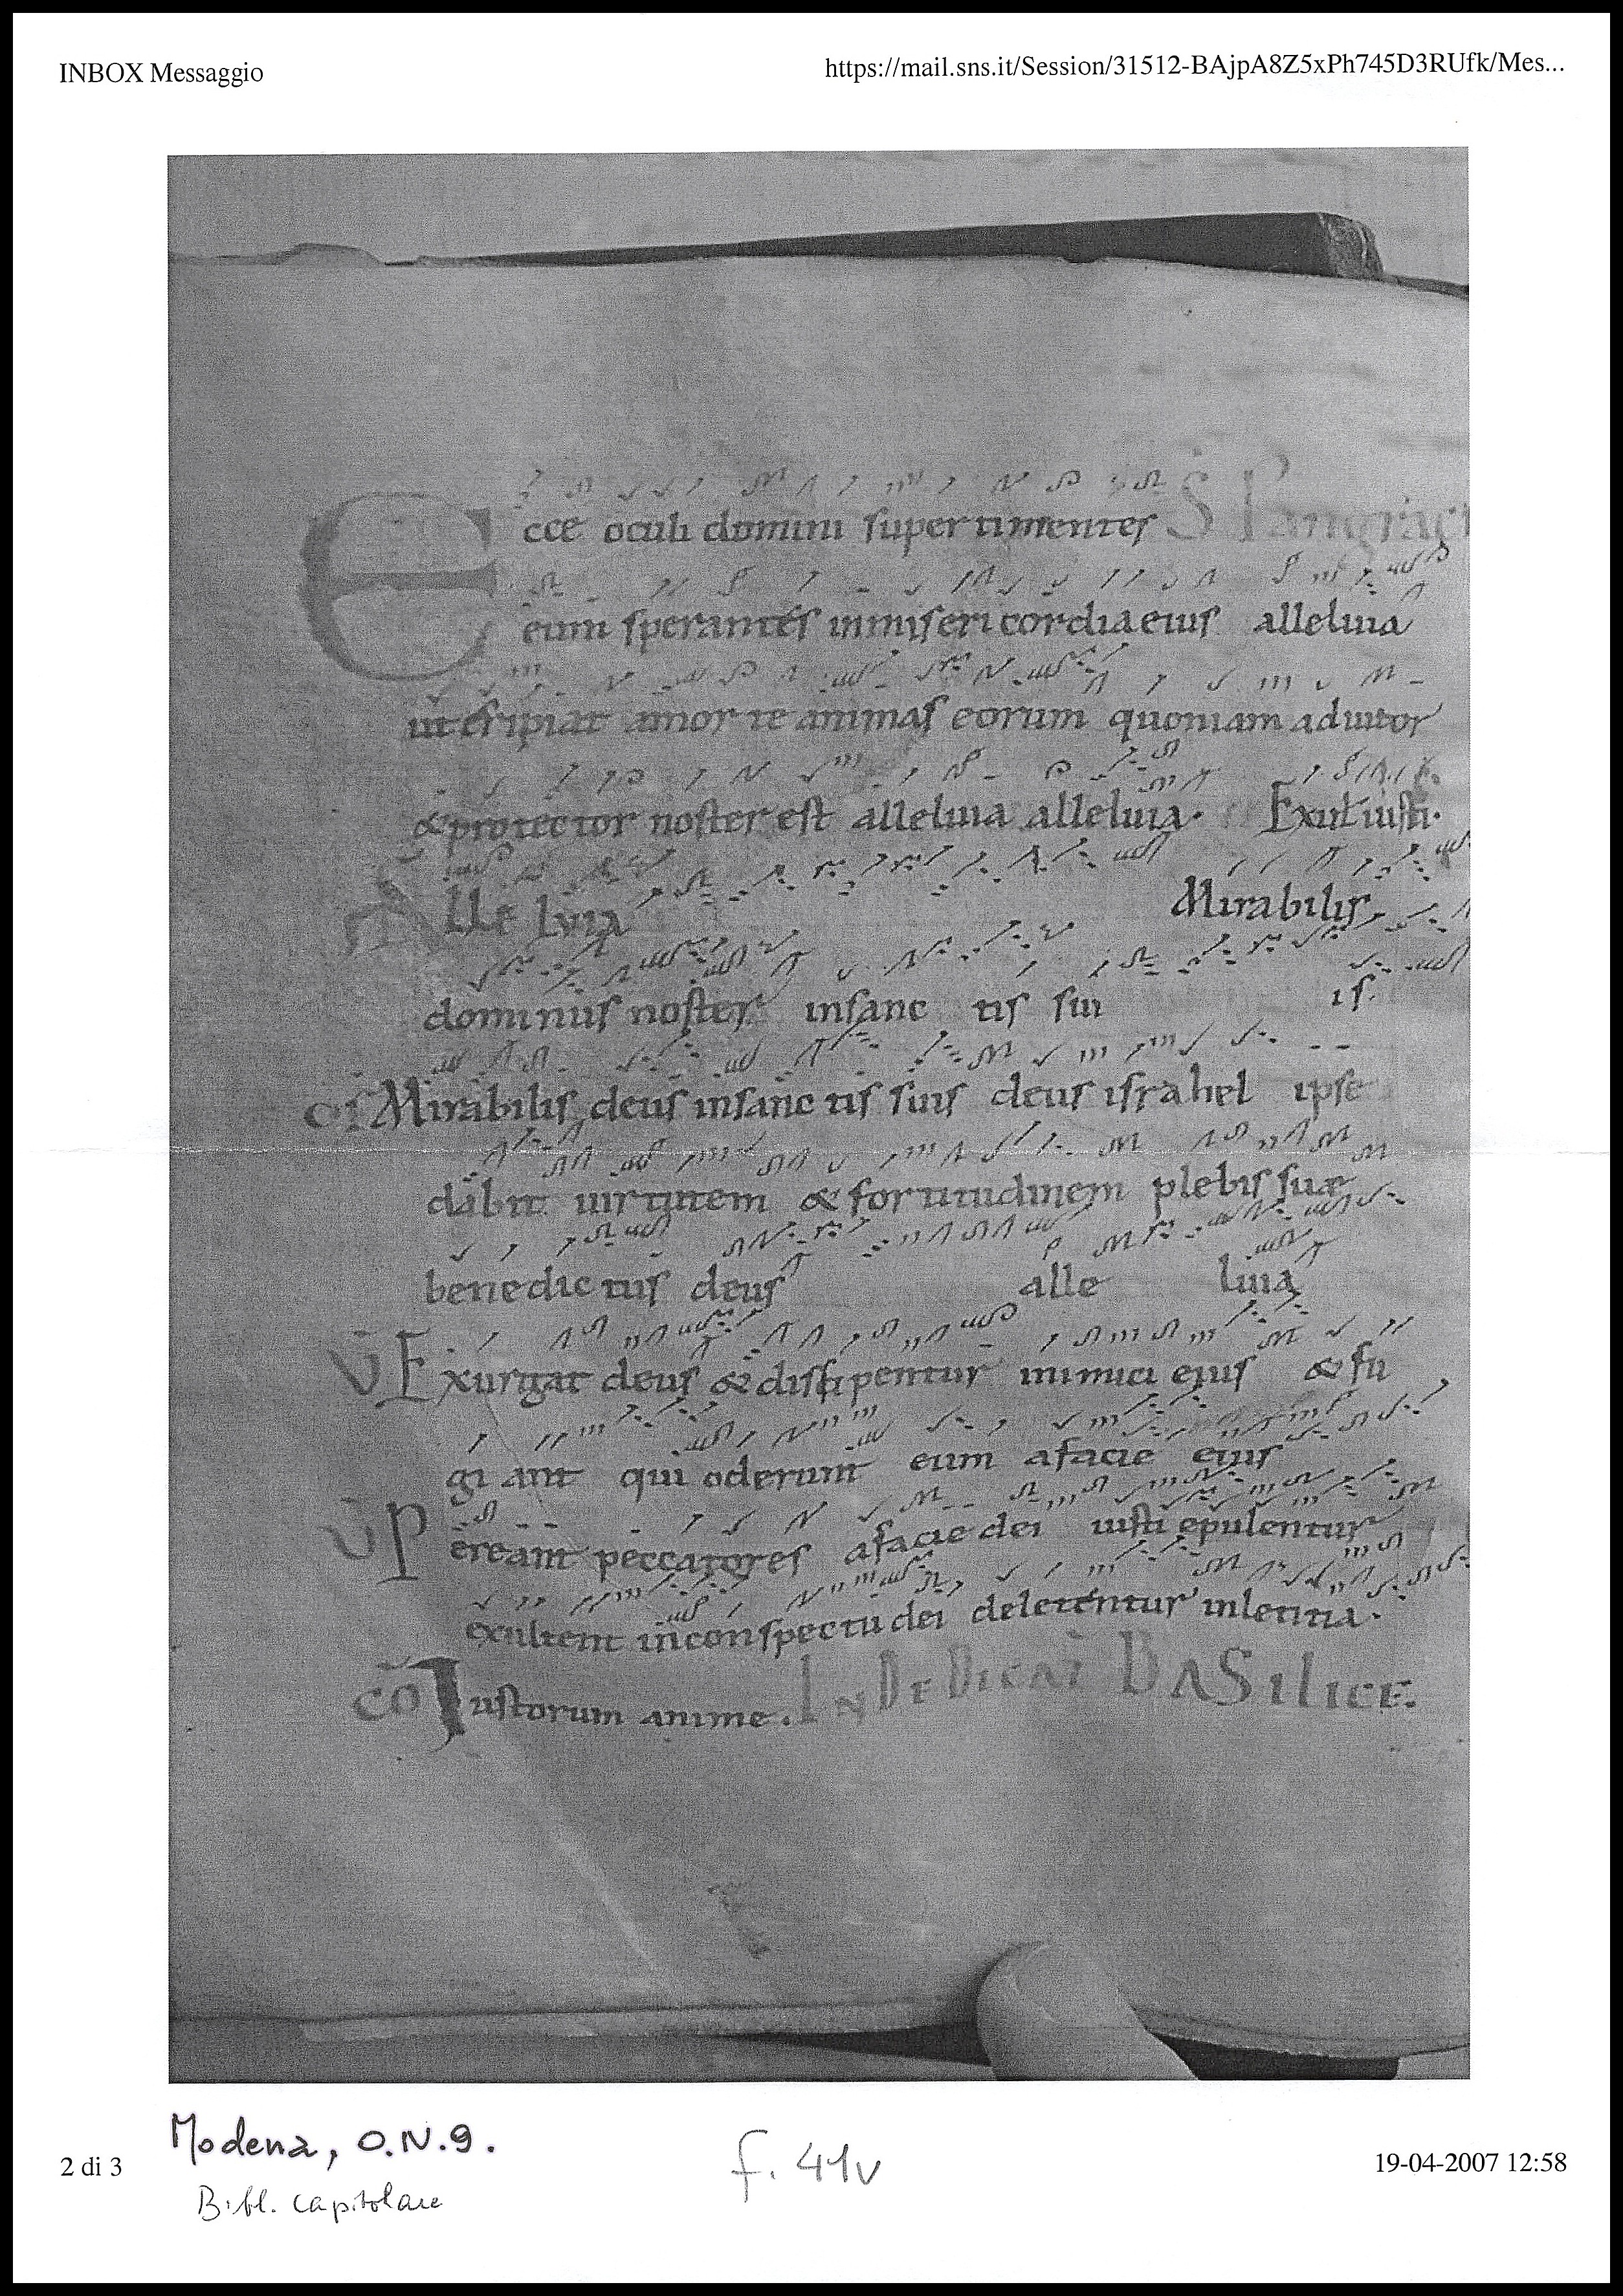 INBOX Messaggio
https://mail.sns.it/Session/31512-BAjpA8Z5xPh745D3RUfk/Mes...
Ecce oculi domini super timentes S Pangraci
eum sperantes in misericordia eius alleluia
ut eripiat a mor te animas eorum quoniam adiutor
& protector noster est alleluia alleluia. Exult iusti.
Alle luia Mirabilis
dominus noster in sanc tis sui is.
OF Mirabilis deus in sanc tis suis deus israhel ipse
dabit uirtutem & fortitudinem plebis suae
benedictus deus alle luia
V̄ Exurgat deus & dissipentur inimici eius & fu
gi ant qui oderunt eum a facie eius
V̄ Pereant peccatores a facie dei iusti epulentur
exultent in conspectu dei delectentur in letitia.
CŌ Iustorum anime. IN DEDICAT BASILICE.
Modena, O.N.9.
f. 41v
2 di 3
19-04-2007 12:58
Bibl. capitolare